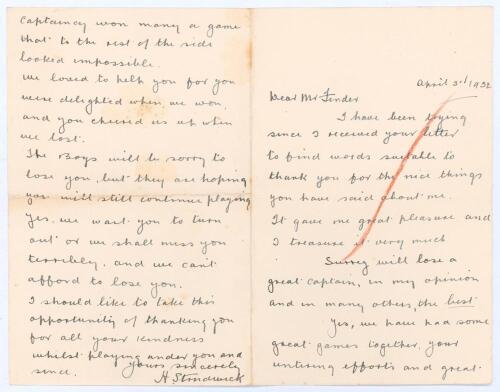 April 3rd 1932
Dear Mr Fender
I have been trying
since I received your letter
to find words suitable to
thank you for the nice things
you have said about me.
It gave me great pleasure and
I treasure it very much
Surrey will lose a
great captain, in my opinion
and in many others, the best
Yes, we have had some
great games together, your
untiring efforts and great
captaincy won many a game
that to the rest of the side
looked impossible.
We loved to help you for you
were delighted when we won,
and you cheered us up when
we lost.
The Boys will be sorry to
lose you, but they are hoping
you will still continue playing
Yes, we want you to turn
out or we shall miss you
terribly, and we can't
afford to lose you.
I should like to take this
opportunity of thanking you
for all your kindness
whilst playing under you and
since. Yours sincerely
H Strudwick